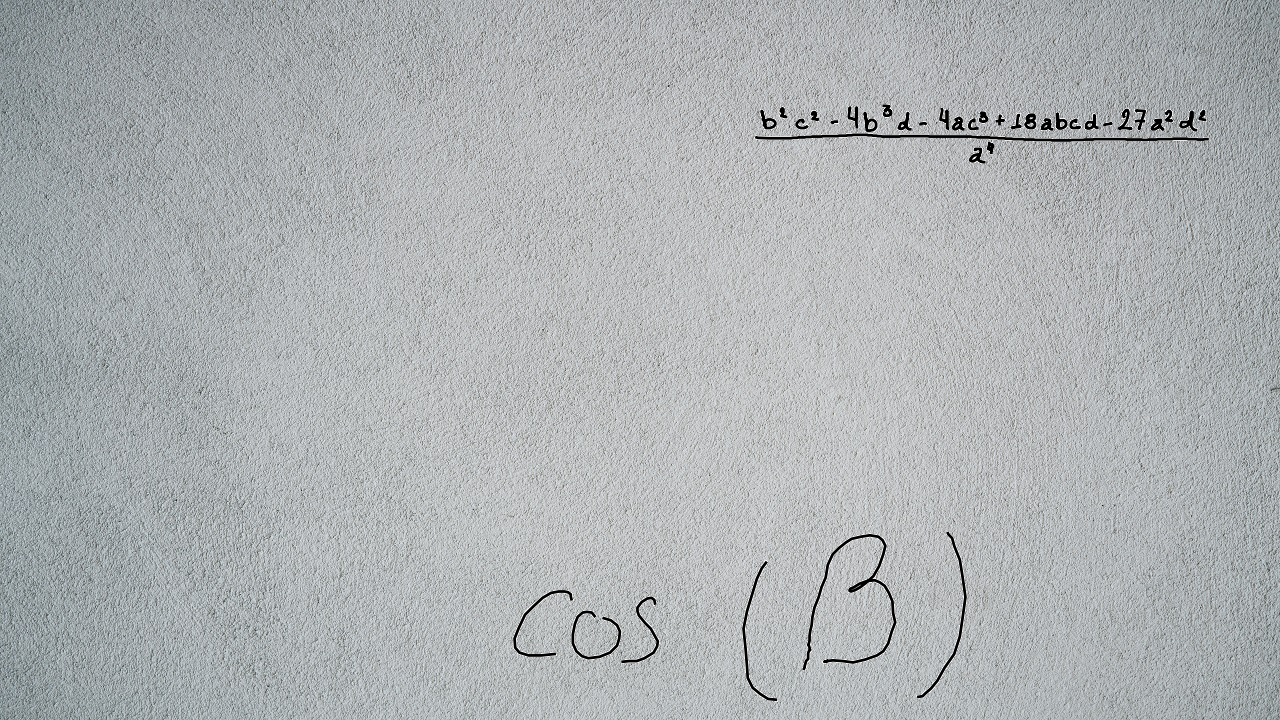 \frac{b^2c^2 - 4b^3d - 4ac^3 + 18abcd - 27a^2d^2}{a^4}
cos (β)